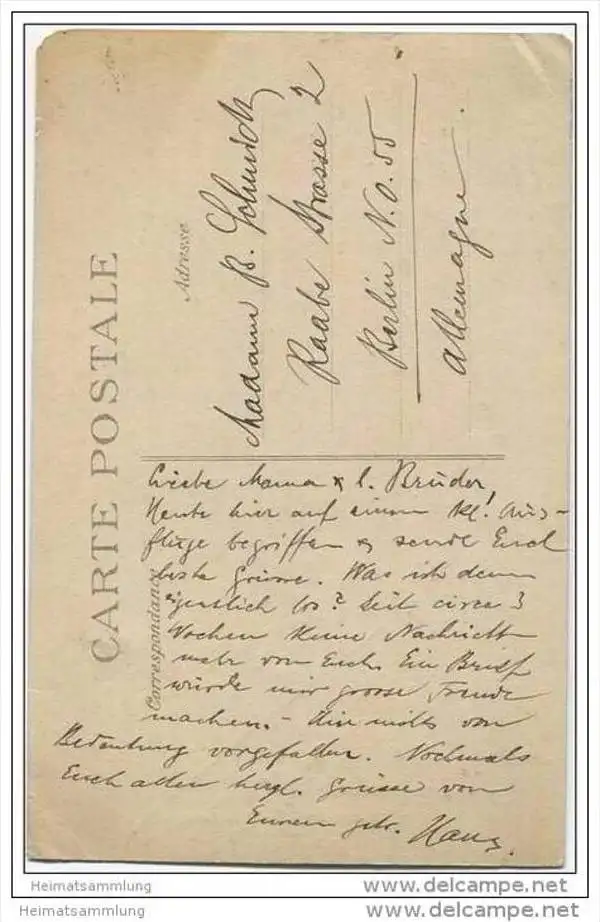 CARTE POSTALE
Correspondance
Adresse
Madame B. Schmidt
Raabe Strasse 2
Berlin N.O. 55
Allemagne.
Liebe Mama & l. Brüder,
Heute hier auf einem kl. Aus-
fluge begriffen & sende Euch
beste Grüsse. Was ist denn
eigentlich los? Seit circa 3
Wochen keine Nachricht
mehr von Euch. Ein Brief
würde mir grosse Freude
machen. - Hier nichts von
Bedeutung vorgefallen. Nochmals
Euch allen herzl. Grüsse von
Eurem getr. Hans.
Heimatsammlung
picture.akpool.de
Heimatsammlung
picture.akpool.de